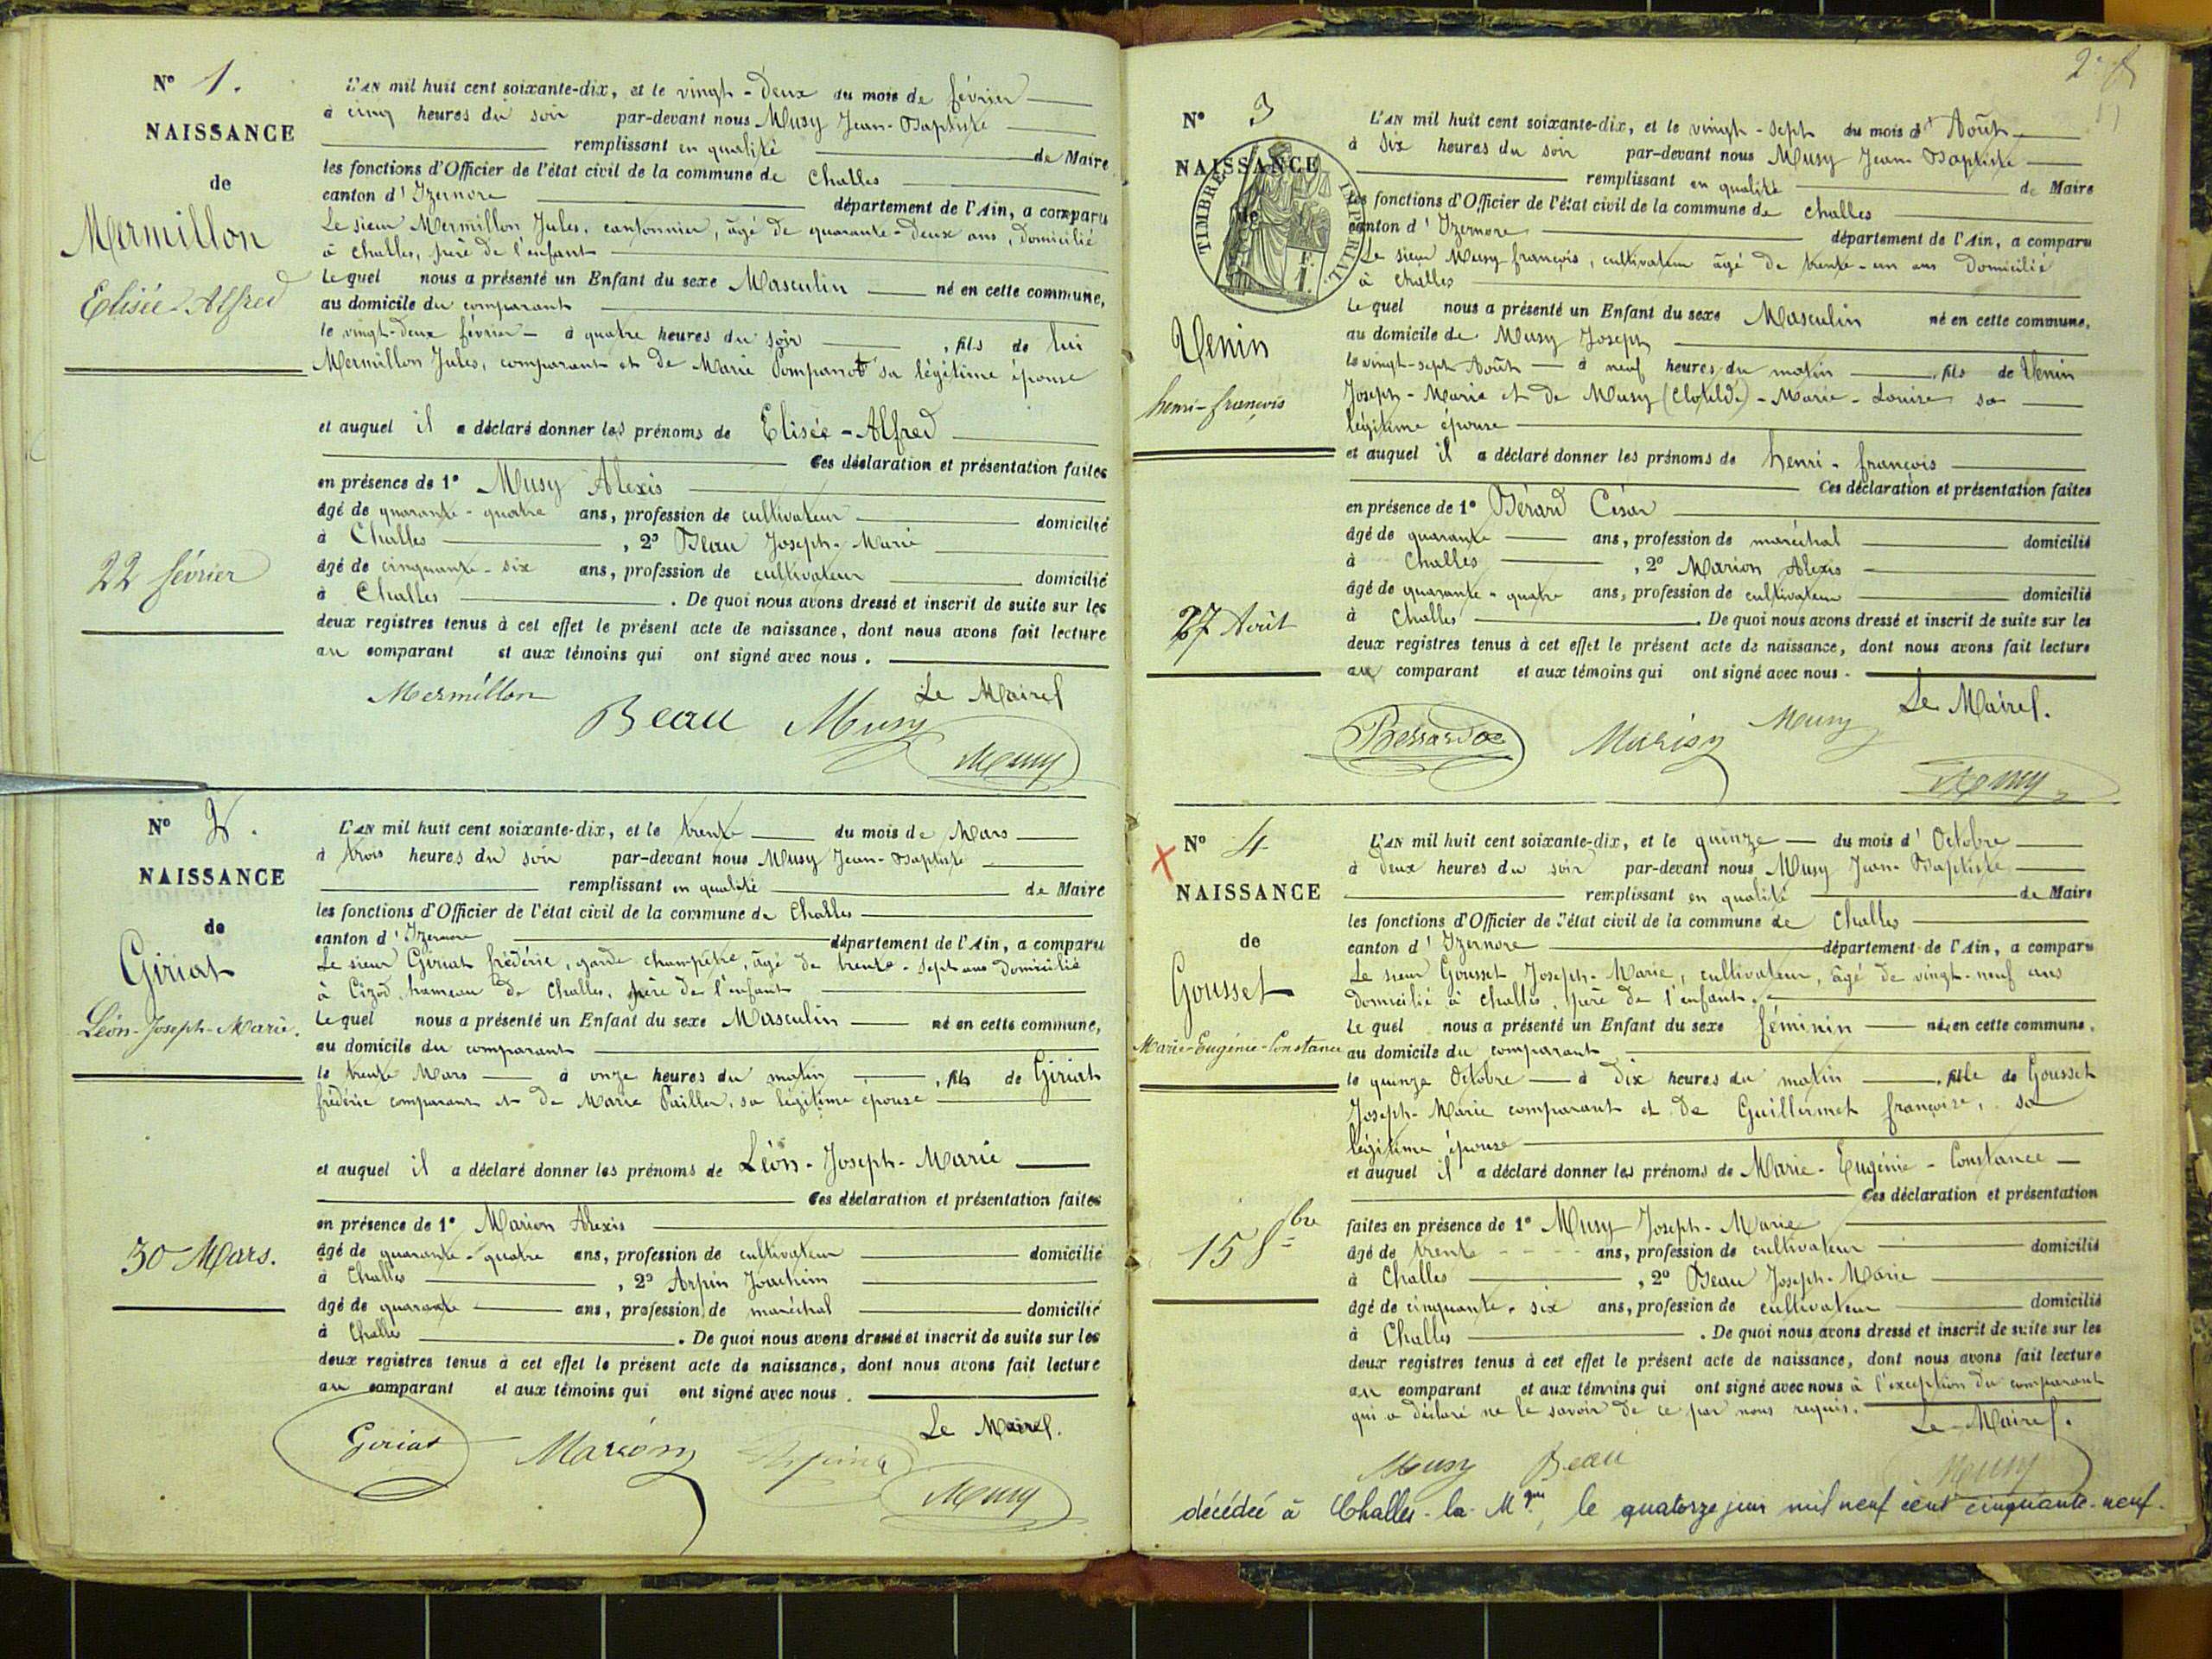 N° 1.
NAISSANCE
de
Mermillon
Elisée-Alfred
22 février
L'AN mil huit cent soixante-dix, et le vingt-deux du mois de février
à cinq heures du soir par-devant nous Musy Jean-Baptiste
remplissant en qualité de Maire
les fonctions d'Officier de l'état civil de la commune de Challes
canton d'Izernore département de l'Ain, a comparu
Le sieur Mermillon Jules, cantonnier, âgé de quarante-deux ans, domicilié
à Challes, père de l'enfant
Lequel nous a présenté un Enfant du sexe Masculin né en cette commune,
au domicile du comparant
le vingt-deux février à quatre heures du soir, fils de lui
Mermillon Jules, comparant et de Marie Companot sa légitime épouse
et auquel il a déclaré donner les prénoms de Elisée-Alfred
Ces déclaration et présentation faites
en présence de 1° Musy Alexis
âgé de quarante-quatre ans, profession de cultivateur domicilié
à Challes, 2° Beau Joseph-Marie
âgé de cinquante-six ans, profession de cultivateur domicilié
à Challes. De quoi nous avons dressé et inscrit de suite sur les
deux registres tenus à cet effet le présent acte de naissance, dont nous avons fait lecture
au comparant et aux témoins qui ont signé avec nous.
Mermillon Beau Musy Le Maire
Musy
N° 2.
NAISSANCE
de
Giriat
Léon-Joseph-Marie.
30 Mars.
L'AN mil huit cent soixante-dix, et le trente du mois de Mars
à trois heures du soir par-devant nous Musy Jean-Baptiste
remplissant en qualité de Maire
les fonctions d'Officier de l'état civil de la commune de Challes
canton d'Izernore département de l'Ain, a comparu
Le sieur Giriat frédéric, garde champêtre, âgé de trente-sept ans domicilié
à Cizod hameau de Challes, père de l'enfant
Lequel nous a présenté un Enfant du sexe Masculin né en cette commune,
au domicile du comparant
le trente Mars à onze heures du matin, fils de Giriat
frédéric comparant et de Marie Pailler, sa légitime épouse
et auquel il a déclaré donner les prénoms de Léon-Joseph-Marie
Ces déclaration et présentation faites
en présence de 1° Marion Alexis
âgé de quarante-quatre ans, profession de cultivateur domicilié
à Challes, 2° Arpin Joachim
âgé de quarante ans, profession de maréchal domicilié
à Challes. De quoi nous avons dressé et inscrit de suite sur les
deux registres tenus à cet effet le présent acte de naissance, dont nous avons fait lecture
au comparant et aux témoins qui ont signé avec nous.
Le Maire.
Giriat Marion Arpin
Musy
N° 3
NAISSANCE
de
TIMBRE IMPERIAL
Venin
henri-françois
27 Août
L'AN mil huit cent soixante-dix, et le vingt-sept du mois d'Août
à Six heures du soir par-devant nous Musy Jean-Baptiste
remplissant en qualité de Maire
les fonctions d'Officier de l'état civil de la commune de Challes
canton d'Izernore département de l'Ain, a comparu
Le sieur Musy françois, cultivateur âgé de trente-un ans domicilié
à Challes
Lequel nous a présenté un Enfant du sexe Masculin né en cette commune,
au domicile de Musy Joseph
le vingt-sept Août à neuf heures du matin, fils de Venin
Joseph-Marie et de Musy (Clotilde)-Marie-Louise sa
légitime épouse
et auquel il a déclaré donner les prénoms de henri-françois
Ces déclaration et présentation faites
en présence de 1° Bérard César
âgé de quarante ans, profession de maréchal domicilié
à Challes, 2° Marion Alexis
âgé de quarante-quatre ans, profession de cultivateur domicilié
à Challes. De quoi nous avons dressé et inscrit de suite sur les
deux registres tenus à cet effet le présent acte de naissance, dont nous avons fait lecture
au comparant et aux témoins qui ont signé avec nous.
Le Maire.
Marion Musy
Musy
N° 4
NAISSANCE
de
Gousset
Marie-Eugénie-Constance
15 8bre
L'AN mil huit cent soixante-dix, et le quinze du mois d'Octobre
à deux heures du soir par-devant nous Musy Jean-Baptiste
remplissant en qualité de Maire
les fonctions d'Officier de l'état civil de la commune de Challes
canton d'Izernore département de l'Ain, a comparu
Le sieur Gousset Joseph-Marie, cultivateur, âgé de vingt-neuf ans
domicilié à Challes, père de l'enfant.
Lequel nous a présenté un Enfant du sexe féminin née en cette commune,
au domicile du comparant
le quinze Octobre à dix heures du matin, fille de Gousset
Joseph-Marie comparant et de Guillermet françoise, sa
légitime épouse
et auquel il a déclaré donner les prénoms de Marie-Eugénie-Constance
Ces déclaration et présentation
faites en présence de 1° Musy Joseph-Marie
âgé de trente ans, profession de cultivateur domicilié
à Challes, 2° Beau Joseph-Marie
âgé de cinquante-six ans, profession de cultivateur domicilié
à Challes. De quoi nous avons dressé et inscrit de suite sur les
deux registres tenus à cet effet le présent acte de naissance, dont nous avons fait lecture
au comparant et aux témoins qui ont signé avec nous à l'exception du comparant
qui a déclaré ne le savoir de ce par nous requis.
Le Maire.
Musy Beau Musy
décédée à Challes-la-Mgne, le quatorze juin mil neuf cent cinquante-neuf.